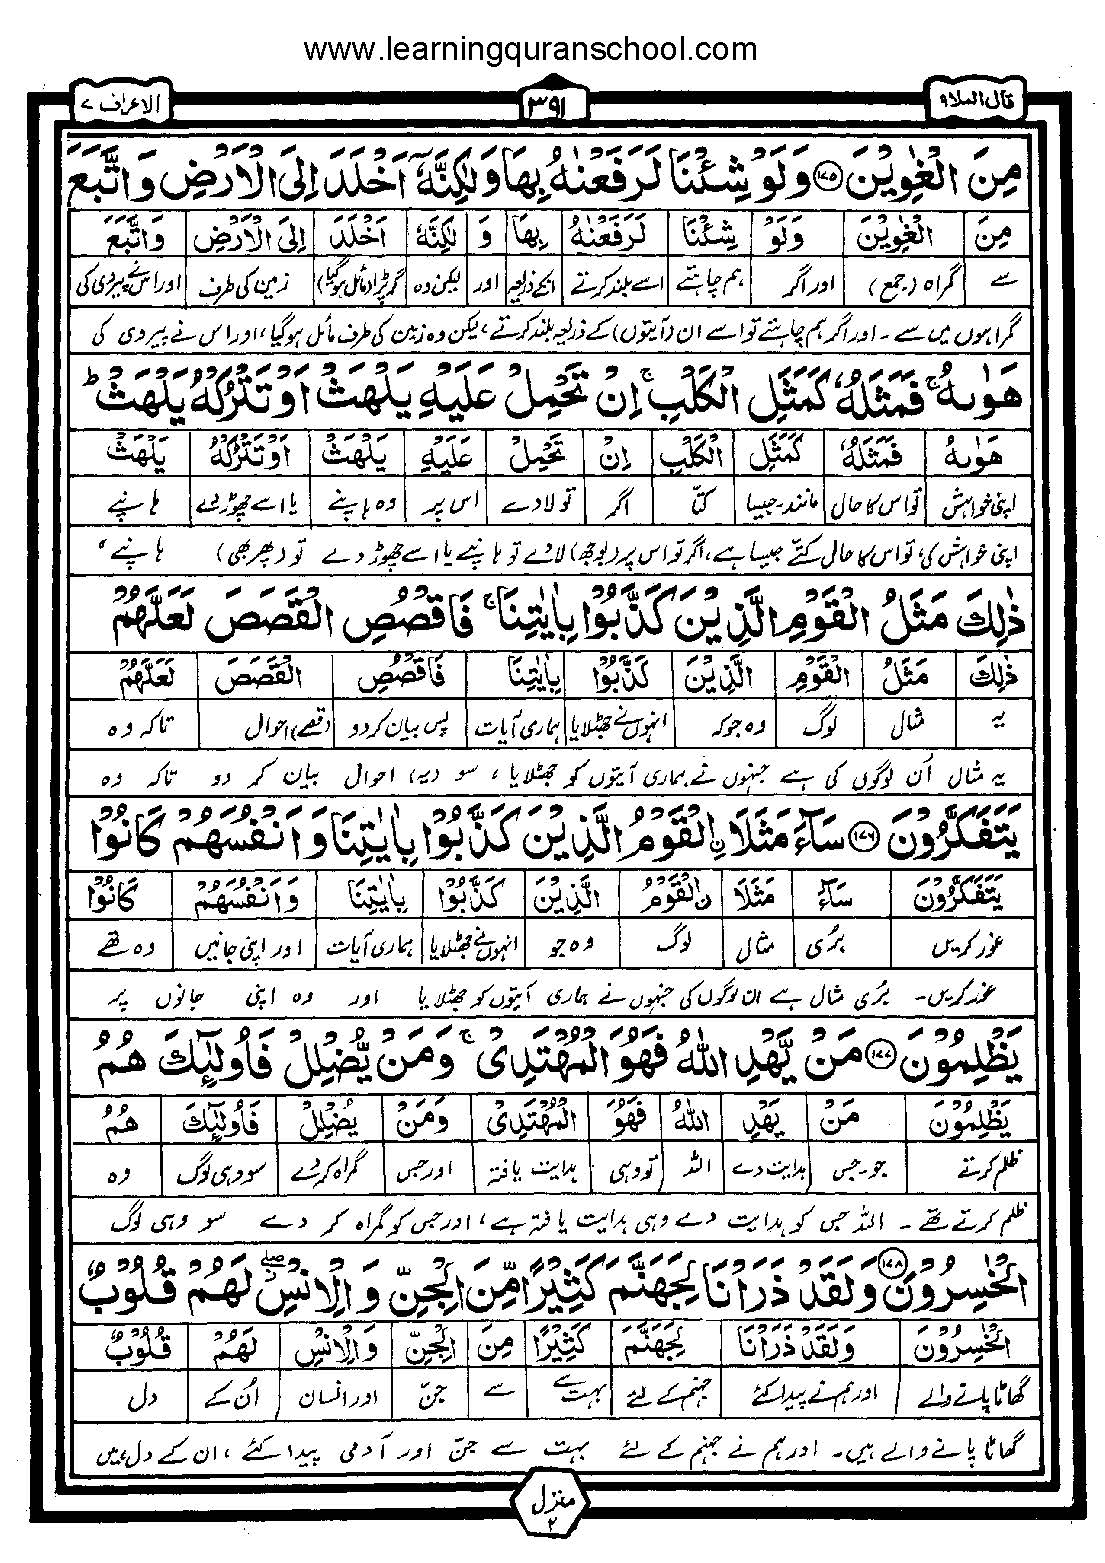 www.learningquranschool.com
قال الملا ۹ ۳۹۱ الاعراف ۷
مِنَ الْغٰوِیْنَ ۝۱۷۵ وَلَوْ شِئْنَا لَرَفَعْنٰهُ بِهَا وَلٰكِنَّهٗۤ اَخْلَدَ اِلَی الْاَرْضِ وَاتَّبَعَ
مِنَ الْغٰوِیْنَ وَلَوْ شِئْنَا لَرَفَعْنٰهُ بِهَا وَ لٰكِنَّهٗۤ اَخْلَدَ اِلَی الْاَرْضِ وَاتَّبَعَ
سے گمراہ (جمع) اور اگر ہم چاہتے اسے بلند کرتے انکے ذریعہ اور لیکن وہ گر پڑا (مائل ہوگیا) زمین کی طرف اور اس نے پیروی کی
گمراہوں میں سے ۔ اور اگر ہم چاہتے تو اسے ان (آیتوں) کے ذریعہ بلند کرتے، لیکن وہ زمین کی طرف مائل ہوگیا، اور اس نے پیروی کی
هَوٰىهُ ۚ فَمَثَلُهٗ كَمَثَلِ الْكَلْبِ ۚ اِنْ تَحْمِلْ عَلَیْهِ یَلْهَثْ اَوْ تَتْرُكْهُ یَلْهَثْ ؕ
هَوٰىهُ فَمَثَلُهٗ كَمَثَلِ الْكَلْبِ اِنْ تَحْمِلْ عَلَیْهِ یَلْهَثْ اَوْ تَتْرُكْهُ یَلْهَثْ
اپنی خواہش تو اس کا حال مانند۔جیسا کتا اگر تو لادے اس پر وہ ہانپے یا اسے چھوڑ دے ہانپے
اپنی خواہش کی، تو اس کا حال کتے جیسا ہے، اگر تو اس پر (بوجھ) لادے تو ہانپے یا اسے چھوڑ دے تو (پھر بھی) ہانپے ،
ذٰلِكَ مَثَلُ الْقَوْمِ الَّذِیْنَ كَذَّبُوْا بِاٰیٰتِنَا ۚ فَاقْصُصِ الْقَصَصَ لَعَلَّهُمْ
ذٰلِكَ مَثَلُ الْقَوْمِ الَّذِیْنَ كَذَّبُوْا بِاٰیٰتِنَا فَاقْصُصِ الْقَصَصَ لَعَلَّهُمْ
یہ مثال لوگ وہ جو کہ انہوں نے جھٹلایا ہماری آیات پس بیان کردو (قصے) احوال تاکہ وہ
یہ مثال اُن لوگوں کی ہے جنہوں نے ہماری آیتوں کو جھٹلایا ، سو (یہ) احوال بیان کر دو تاکہ وہ
یَتَفَكَّرُوْنَ ۝۱۷۶ سَآءَ مَثَلَا اِ۟لْقَوْمُ الَّذِیْنَ كَذَّبُوْا بِاٰیٰتِنَا وَاَنْفُسَهُمْ كَانُوْا
یَتَفَكَّرُوْنَ سَآءَ مَثَلَا ن۟الْقَوْمُ الَّذِیْنَ كَذَّبُوْا بِاٰیٰتِنَا وَاَنْفُسَهُمْ كَانُوْا
غور کریں بُری مثال لوگ وہ جو انہوں نے جھٹلایا ہماری آیات اور اپنی جانیں وہ تھے
غور کریں۔ بُری مثال ہے ان لوگوں کی جنہوں نے ہماری آیتوں کو جھٹلایا اور وہ اپنی جانوں پر
یَظْلِمُوْنَ ۝۱۷۷ مَنْ یَّهْدِ اللّٰهُ فَهُوَ الْمُهْتَدِیْ ۚ وَمَنْ یُّضْلِلْ فَاُولٰٓئِكَ هُمُ
یَظْلِمُوْنَ مَنْ یَهْدِ اللّٰهُ فَهُوَ الْمُهْتَدِیْ وَمَنْ یُضْلِلْ فَاُولٰٓئِكَ هُمُ
ظلم کرتے جو۔جس ہدایت دے اللہ تو وہی ہدایت یافتہ اور جس گمراہ کر دے سو وہی لوگ وہ
ظلم کرتے تھے ۔ اللہ جس کو ہدایت دے وہی ہدایت یافتہ ہے، اور جس کو گمراہ کر دے سو وہی لوگ
الْخٰسِرُوْنَ ۝۱۷۸ وَلَقَدْ ذَرَاْنَا لِجَهَنَّمَ كَثِیْرًا مِّنَ الْجِنِّ وَالْاِنْسِ ۖ لَهُمْ قُلُوْبٌ
الْخٰسِرُوْنَ وَلَقَدْ ذَرَاْنَا لِجَهَنَّمَ كَثِیْرًا مِنَ الْجِنِّ وَالْاِنْسِ لَهُمْ قُلُوْبٌ
گھاٹا پانے والے اور ہم نے پیدا کئے جہنم کے لئے بہت سے سے جنّ اور انسان اُن کے دل
گھاٹا پانے والے ہیں۔ اور ہم نے جہنم کے لئے بہت سے جنّ اور آدمی پیدا کئے ، ان کے دل ہیں
منزل ۲